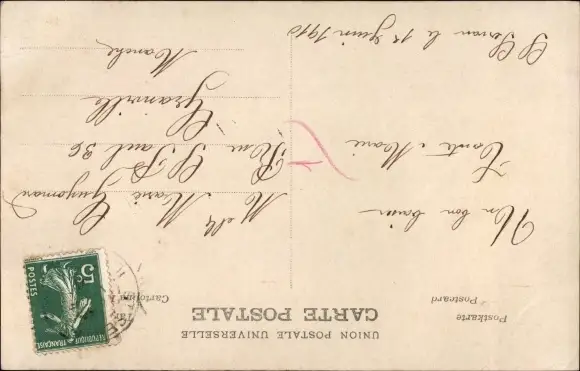 UNION POSTALE UNIVERSELLE
CARTE POSTALE
Postkarte
Postcard
Cartolina
RÉPUBLIQUE FRANÇAISE
5c
POSTES
Un bon baiser
Tonti Marie
St Servan le 1er Juin 1910
Melle Marie Guyomard
Rue St Paul 36
Granville
Manche